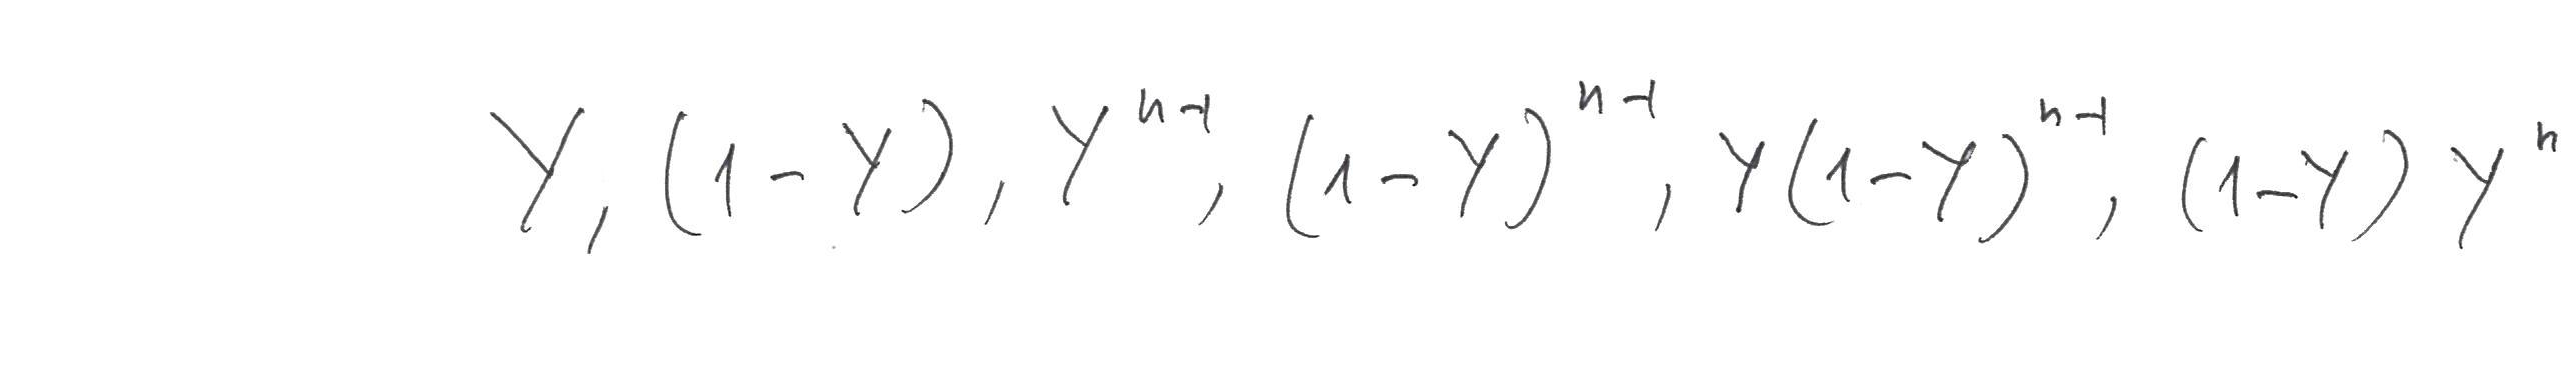 Y, (1-Y), Y^{n-1}, (1-Y)^{n-1}, Y(1-Y)^{n-1}, (1-Y)Y^{n}